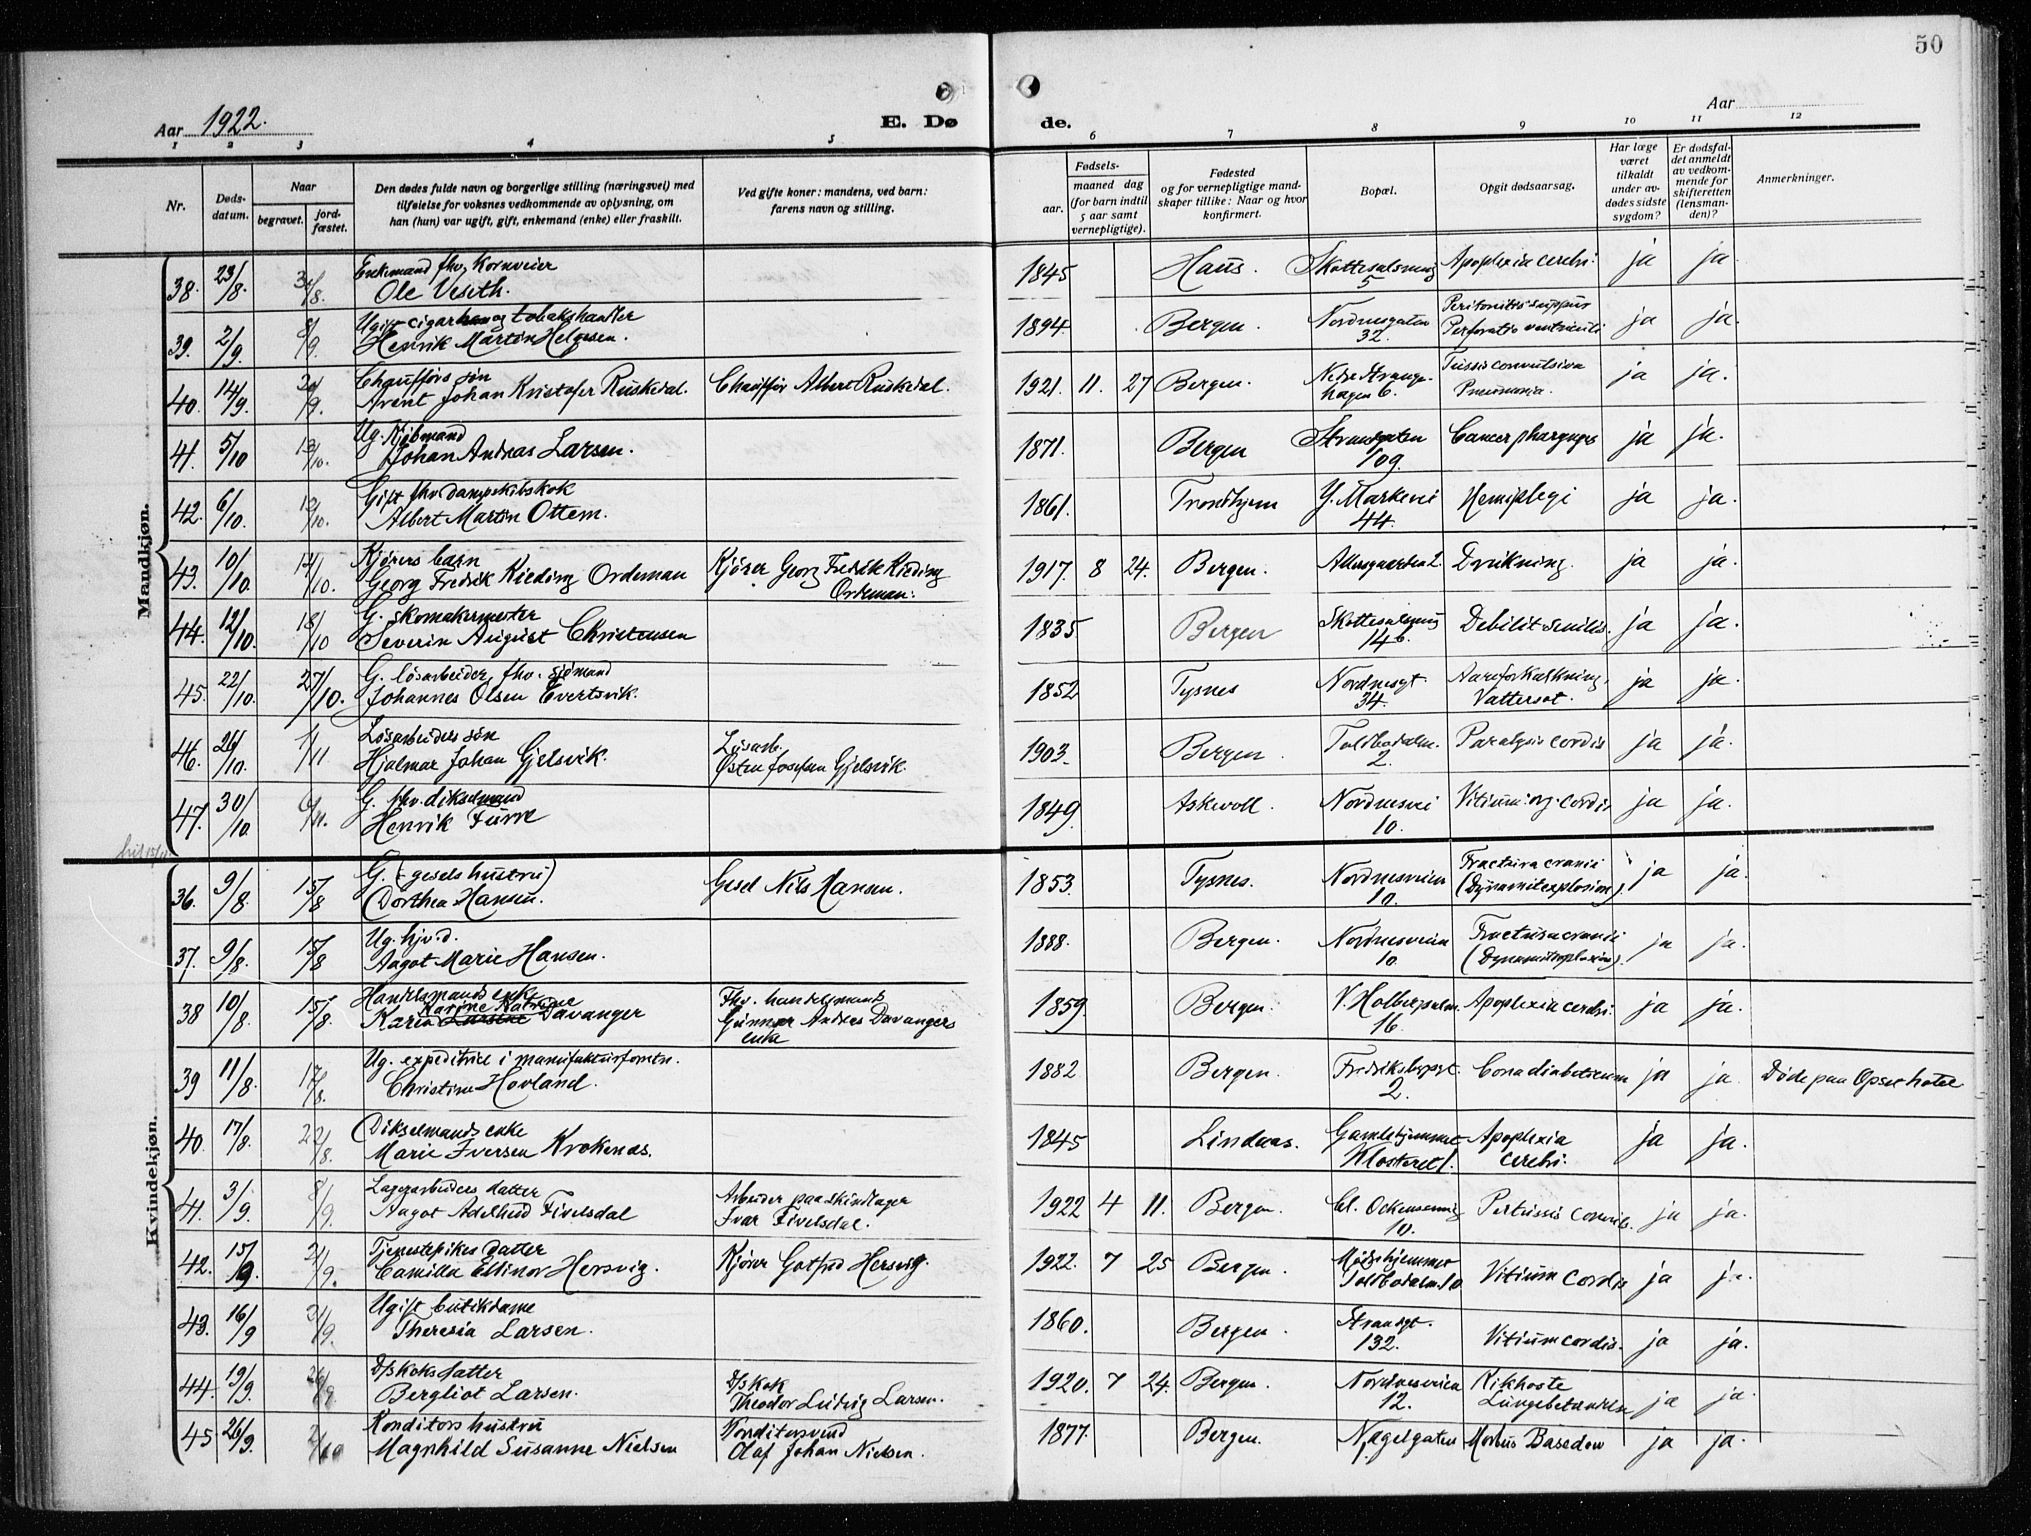 50
Aar 1922.
E. Dø de.
Aar
1 2 3 4 5 6 7 8 9 10 11 12
Nr.
Døds-
datum.
Naar
begravet.
jord-
fæstet.
Den dødes fulde navn og borgerlige stilling (næringsvei) med
tilføielse for voksnes vedkommende av oplysning, om
han (hun) var ugift, gift, enkemand (enke) eller fraskilt.
Ved gifte koner: mandens, ved barn:
farens navn og stilling.
Fødsels-
aar.
maaned dag
(for barn indtil
5 aar samt
vernepligtige).
Fødested
og for vernepligtige mand-
skaper tillike: Naar og hvor
konfirmert.
Bopæl.
Opgit dødsaarsag.
Har læge
været
tilkaldt
under av-
dødes sidste
sygdom?
Er dødsfal-
det anmeldt
av vedkom-
mende for
skifteretten
(lensman-
den)?
Anmerkninger.
Mandkjøn.
38. 23/8. Enkemand fhv. Kornveier
Ole Veseth.
1845 Haus. Skottesalmening 5 Apoplexia cerebri. ja ja.
39. 2/9. 8/9. Ugift cigar og tobakshandler
Henrik Martin Helgesen.
1894. Bergen. Nordnesgaten 32. Peritonitis suppur
Perforatio ventriculi ja ja.
40. 14/9. 20/9. Chaufførs søn
Arent Johan Kristofer Ruskedal. Chauffør Albert Ruskedal.
1921. 11. 27 Bergen. Nedre Strange-
hagen 6. Tussis convulsiva
Pneumonia. ja ja.
41. 5/10 13/10. Ug. Kjøbmand
Johan Andreas Larsen.
1871. Bergen Strandgaten 109. Cancer pharyngis ja ja.
42. 6/10. 12/10. Gift fhv dampskibskok
Albert Martin Ottem.
1861. Trondhjem Y. Markevei 44. Hemiplegi ja ja.
43. 10/10. 14/10. Kjørers barn
Georg Fredrik Kieding Ordeman Kjører Georg Fredrik Kieding
Ordeman.
1917. 8 24. Bergen. Drukning. ja ja.
44. 12/10. 18/10 G. skomakermester
Severin August Christensen
1835 Bergen Skottesalmening 14b. Debilit. senilis. ja ja.
45. 22/10. 27/10. G. løsarbeider, fhv. sjømand
Johannes Olsen Evertsvik.
1852 Tysnes Nordnesgt. 34. Aareforkalkning.
Vattersot. ja ja.
46. 26/10. 1/11 Løsarbeiders søn
Hjalmar Johan Gjelsvik. Løsarb.
Østen Josefsen Gjelsvik.
1903. Bergen. Toldbodalm. 2. Paralysis cordis ja ja.
47. 30/10. 6/11. G. fhv. dikselmand
Henrik Furre
1849. Askevoll. Nordnesvei 10. Vitium org. cordis ja ja.
Kvindekjøn.
36. 9/8. 15/8 G. (gesels hustru)
Dorthea Hansen. Gesel Nils Hansen.
1853. Tysnes. Nordnesveien 10. Fractura cranii
(Dynamitexplosion). ja ja.
37. 9/8. 15/8 Ug. hjv. d.
Aagot Marie Hansen.
1888. Bergen. Nordnesveien 10. Fractura cranii
(Dynamitexplosion). ja ja.
38 10/8. 15/8. Handelsmands enke
Karine Katrine
Karen Larsine Davanger Fhv. handelsmand
Gunnar Andreas Davangers
enke
1859. Bergen. V. Holbergsalm. 16. Apoplexia cerebri. ja ja
39 11/8. 17/8. Ug. expeditrice i manufakturforretn.
Christine Hovland.
1882 Bergen. Fredriksbergsgt. 2. Coma diabeticum ja ja. Døde paa Opset hotel
40. 17/8. 22/8. Dikselmands enke
Marie Iversen Krokenas.
1845 Lindaas. Gamlehjemmet
Klosteret 1. Apoplexia
cerebri. ja ja.
41. 3/9. 8/9. Lagerarbeiders datter
Aagot Adelheid Fivelsdal Arbeider paa skindlager
Ivar Fivelsdal.
1922 4 11. Bergen. Cl. Ockensmug 10. Pertussis ja ja.
42. 15/9. 21/9. Tjenestepikes datter
Camilla Ellinor Hersvig. Kjører Gotfred Hersvig.
1922. 7 25 Bergen. Mødrehjemmet
Toldbodalm. 10 Vitium cordis ja ja.
43. 16/9 21/9. Ugift butikdame
Theresia Larsen.
1860. Bergen. Strandgt. 132. Vitium cordis. ja ja.
44. 19/9. D/s koks datter
Bergliot Larsen. D/s kok
Theodor Ludvig Larsen.
1920. 7 24. Bergen. Nordnesveien 12. Kikhoste
Lungebetændelse ja ja.
45 26/9. 2/10 Konditors hustru
Magnhild Susanne Nielsen Konditorsvend
Olaf Johan Nielsen.
1877. Bergen. Nøgelgaten Morbus Basedow ja ja.